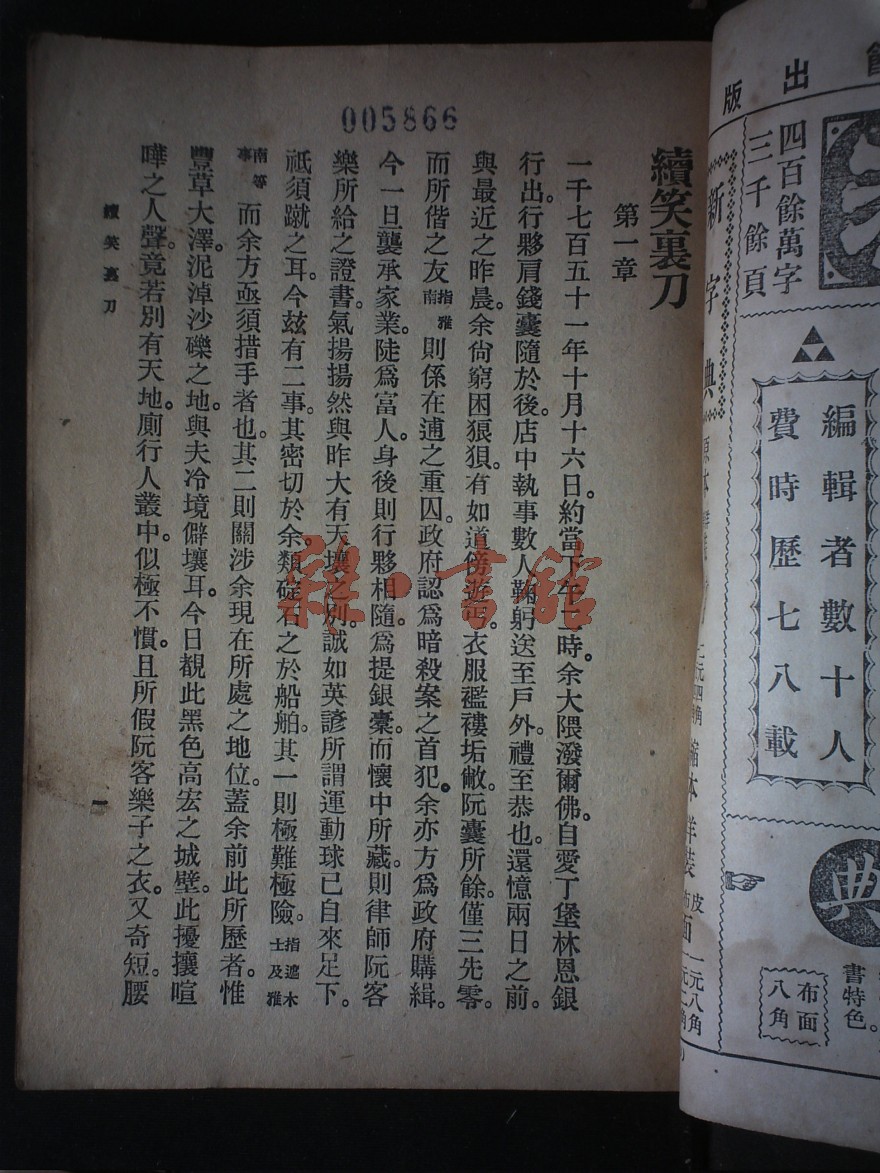 005866
續笑裏刀
第一章
一千七百五十一年十月十六日。約當下午二時。余大隈潑爾佛。自愛丁堡林恩銀
行出。行夥肩錢囊隨於後。店中執事數人鞠躬送至戶外。禮至恭也。還憶兩日之前。
與最近之昨晨。余尙窮困狼狽。有如道傍遊丐。衣服襤褸垢敝。阮囊所餘。僅三先零。
而所偕之友指雅南則係在逋之重囚。政府認爲暗殺案之首犯。余亦方爲政府購緝。
今一旦襲承家業。陡爲富人。身後則行夥相隨。爲提銀橐。而懷中所藏。則律師阮客
樂所給之證書。氣揚揚然。與昨大有天壤之別。誠如英諺所謂運動球已自來足下。
祇須蹴之耳。今玆有二事。其密切於余。類碇石之於船舶。其一則極難極險。指遮木士及雅
南等事而余方亟須措手者也。其二則關涉余現在所處之地位。蓋余前此所歷者。惟
豐草大澤。泥淖沙礫之地。與夫冷境僻壤耳。今日覩此黑色高宏之城壁。此擾攘喧
嘩之人聲。竟若別有天地。廁行人叢中。似極不慣。且所假阮客樂子之衣。又奇短。腰
續笑裏刀
一
雜·書館
出版
四百餘萬字
三千餘頁
新字典
編輯者數十人
費時歷七八載
縮本洋裝
布面
八角
書特色。
典